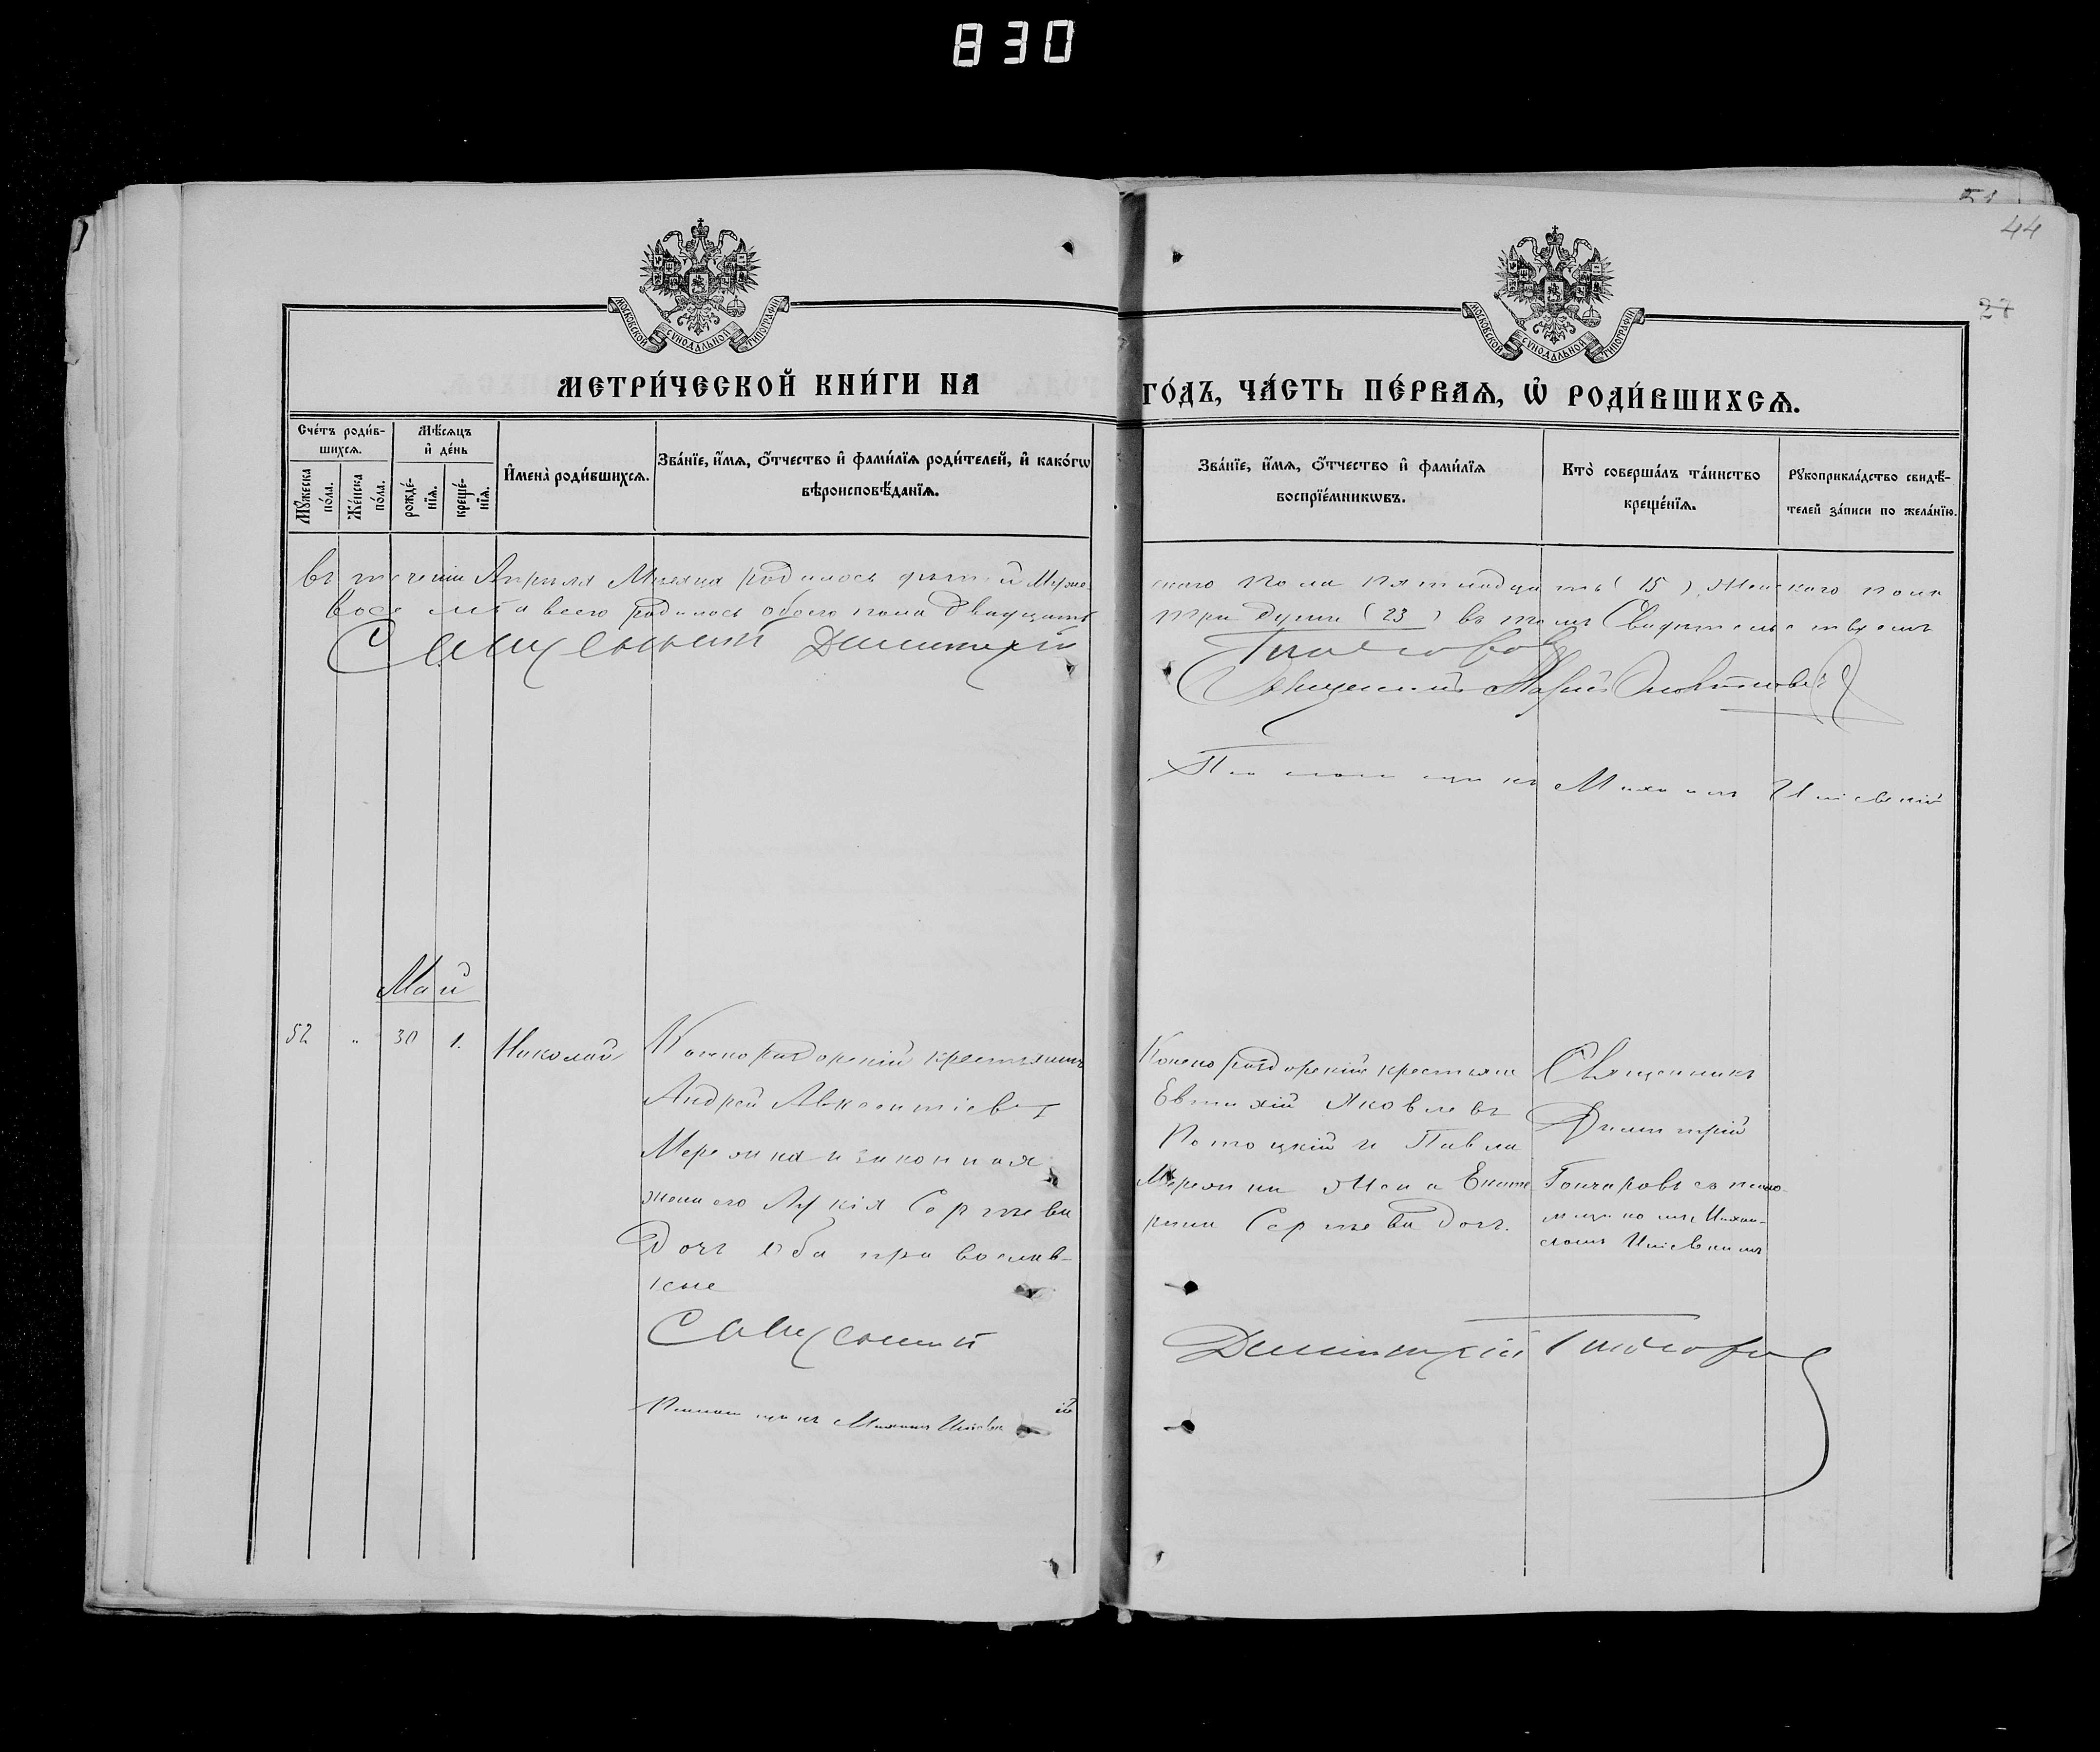 830
51
44
27
МОСКОВСКОЙ СѴНОДАЛЬНОЙ ТИПОГРАФІИ
МОСКОВСКОЙ СѴНОДАЛЬНОЙ ТИПОГРАФІИ
МЕТРИ́ЧЕСКОЙ КНИ́ГИ НА ГО́ДЪ, ЧА́СТЬ ПЕ́РВАѦ, Ѡ҆ РОДИ́ВШИХСѦ.
Сче́тъ роди́в-
шихсѧ.
Мꙋ́жеска
по́ла.
Же́нска
по́ла.
Мѣ́сѧцъ
и҆ де́нь
рожде́-
нїѧ.
креще́-
нїѧ.
И҆мена̀ роди́вшихсѧ.
Зва́нїе, и҆́мѧ, ѻ҆́тчество и҆ фами́лїѧ роди́телей, и҆ како́гѡ
вѣроисповѣ́данїѧ.
Зва́нїе, и҆́мѧ, ѻ҆́тчество и҆ фами́лїѧ
воспрїе́мникѡвъ.
Кто̀ соверша́лъ та́инство
креще́нїѧ.
Рꙋкоприкла́дство свидѣ́-
телей за́писи по жела́нїю.
Въ теченіи Апрѣля Мѣсяца родилось дѣтей Муже-
скаго пола пятнадцать (15) Женскаго пола
восемь а всего родилось обоего пола двадцать
три души (23) въ томъ Свидѣтельствуемъ
Священникъ Димитрій Гончаровъ
Священникъ
Псаломщикъ Михаилъ
Май
52 " 30 1. Николай
Конскораздорскій крестьянинъ
Андрей Авксентіевъ
Мережка и законная
жена его Лукія Сергѣева
Дочь оба православ-
ные
Конскораздорскій крестьян
Евтихій Яковлевъ
Потоцкій и Павла
Мережки Жена Екате-
рина Сергѣева Дочь.
Священникъ
Димитрій
Гончаровъ съ псало-
мщикомъ Михаи-
ломъ
Священникъ Димитрій Гончаровъ
Псаломщикъ Михаилъ